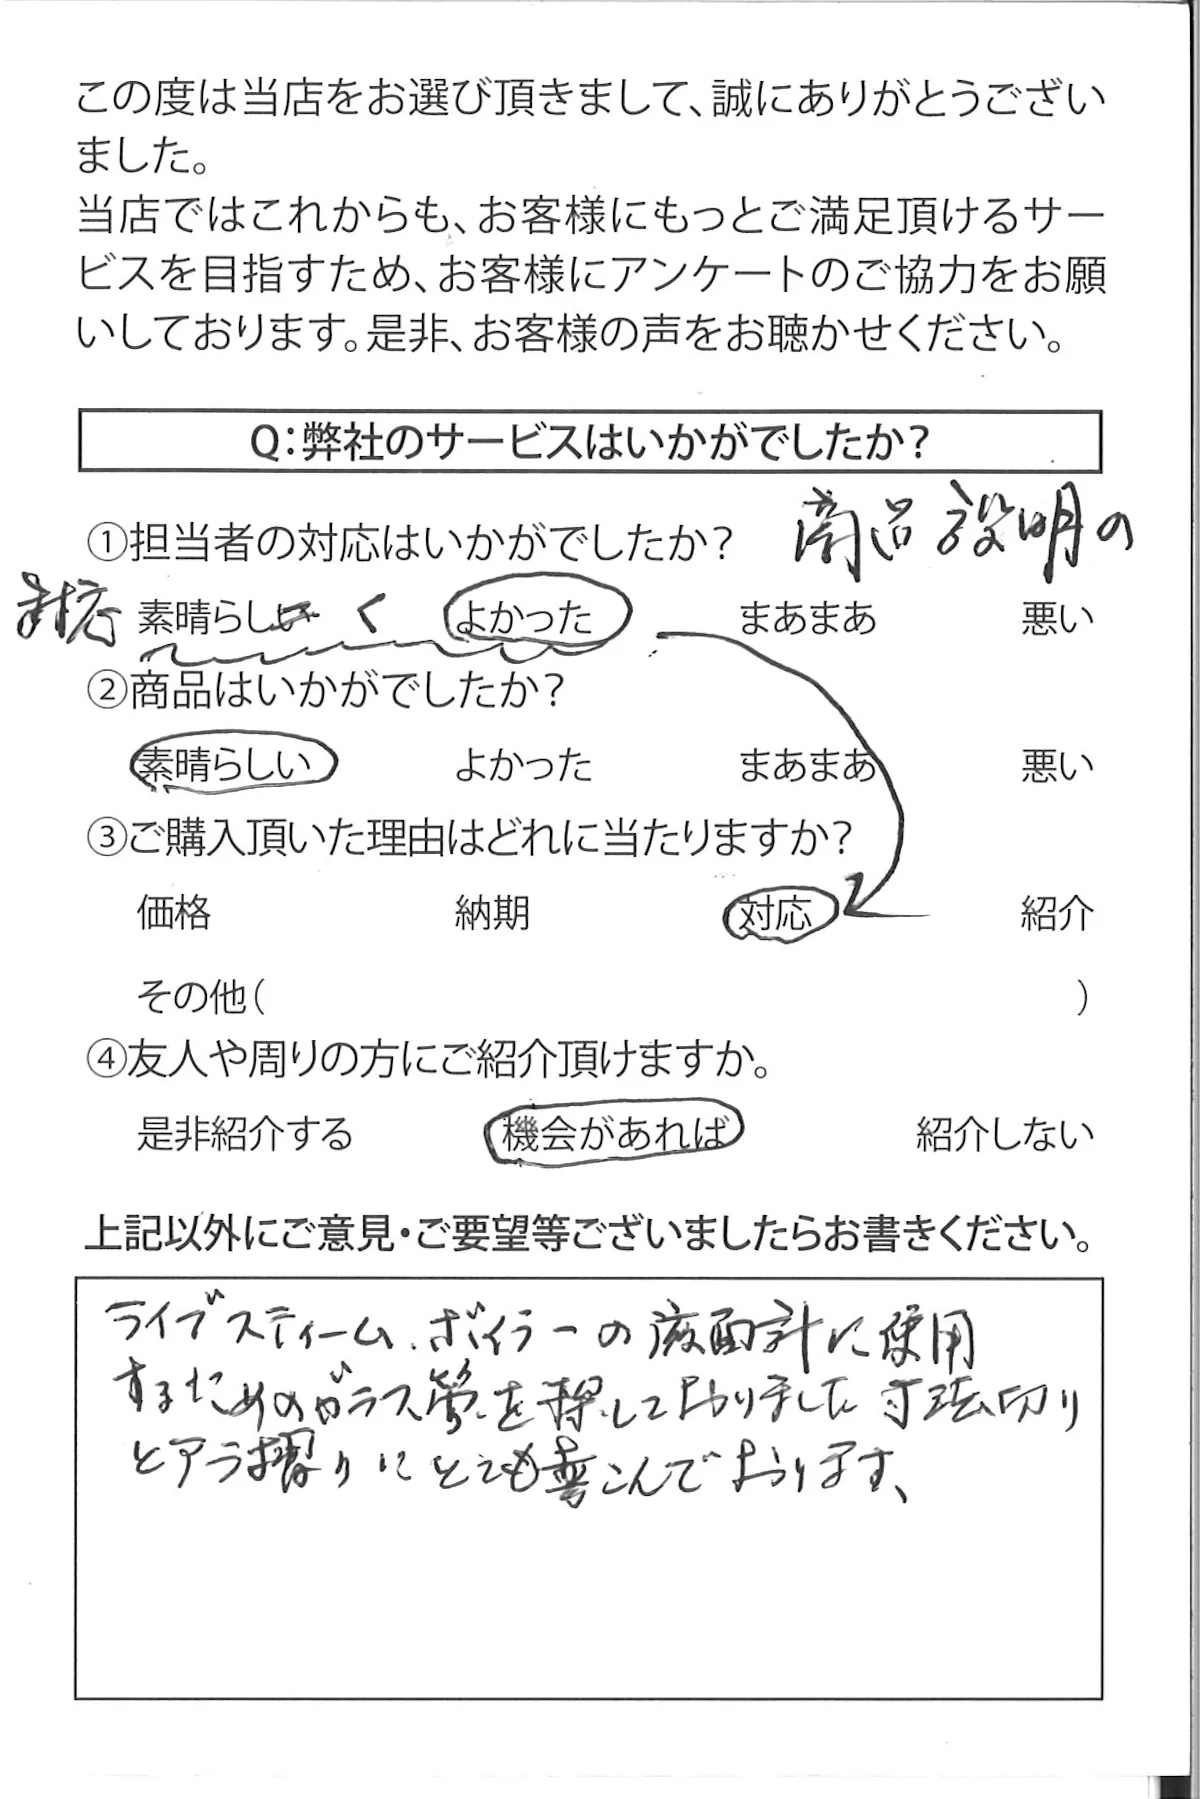 この度は当店をお選び頂きまして、誠にありがとうござい
ました。
当店ではこれからも、お客様にもっとご満足頂けるサー
ビスを目指すため、お客様にアンケートのご協力をお願
いしております。是非、お客様の声をお聴かせください。
Q：弊社のサービスはいかがでしたか？
①担当者の対応はいかがでしたか？ 商品説明の
対応 素晴らしい く よかった まあまあ 悪い
②商品はいかがでしたか？
素晴らしい よかった まあまあ 悪い
③ご購入頂いた理由はどれに当たりますか？
価格 納期 対応 紹介
その他（ ）
④友人や周りの方にご紹介頂けますか。
是非紹介する 機会があれば 紹介しない
上記以外にご意見・ご要望等ございましたらお書きください。
ライブスティーム、ボイラーの液面計に使用
するためのガラス管を探しておりました 寸法切り
とアラ摺りにとても喜こんでおります、